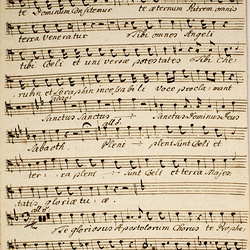 te Dominum Confitemur te æternum Patrem omnis
terra Veneratur Tibi omnes Angeli
tibi Cœli et universæ potestates Tibi Che
rubin et Seraphin incessabili Voce procla: mant
adag:
Sanctus Sanctus Sanctus Dominus Deus
all:
Sabaoth Pleni pleni Sunt Cœli et
ter: ra pleni Sunt Cœli et terra Majes
tatis gloriæ tu: æ.
all:
Te gloriosus Apostolorum Chorus te Prophe